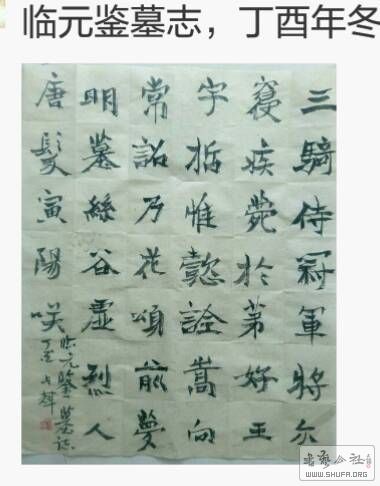 临元鉴墓志，丁酉年冬
三騎侍冠軍將尔
寝疾薨於第好王
字括惟懿詮嵩向
常詔乃花頌前
明墓絲谷虛烈人
唐髮寅陽咲
临元鉴墓志
丁酉
书艺公社
WWW.SHUFA.ORG